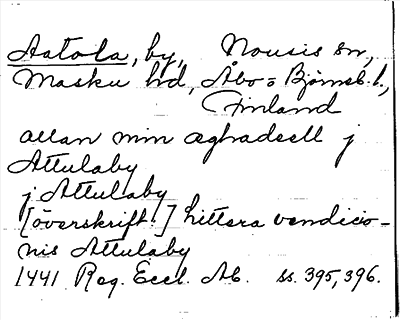 Aatola, by, Nousis sn,
Masku hd, Åbo = Björneb. l.,
Finland
allan min æghadeell j
Attulaby
j Attulaby
[överskrift:] littera vendicio-
nis Attulaby
1441 Reg. Eccl. Ab. ss. 395, 396.